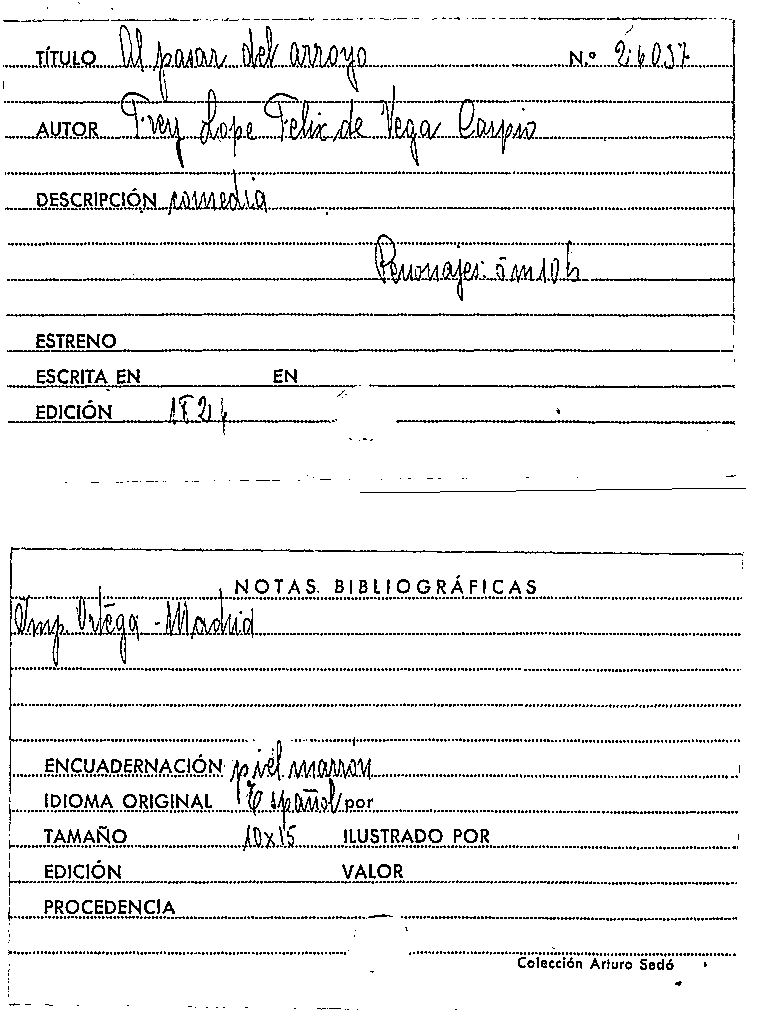 TÍTULO Al pasar del arroyo N.º 26037
AUTOR Frey Lope Felix de Vega Carpio
DESCRIPCIÓN comedia
Personajes: 5 m 10 h
ESTRENO
ESCRITA EN EN
EDICIÓN
NOTAS BIBLIOGRÁFICAS
Imp. Ortega - Madrid
ENCUADERNACIÓN piel marrón
IDIOMA ORIGINAL Español por
TAMAÑO 10x15 ILUSTRADO POR
EDICIÓN VALOR
PROCEDENCIA
Colección Arturo Sedó